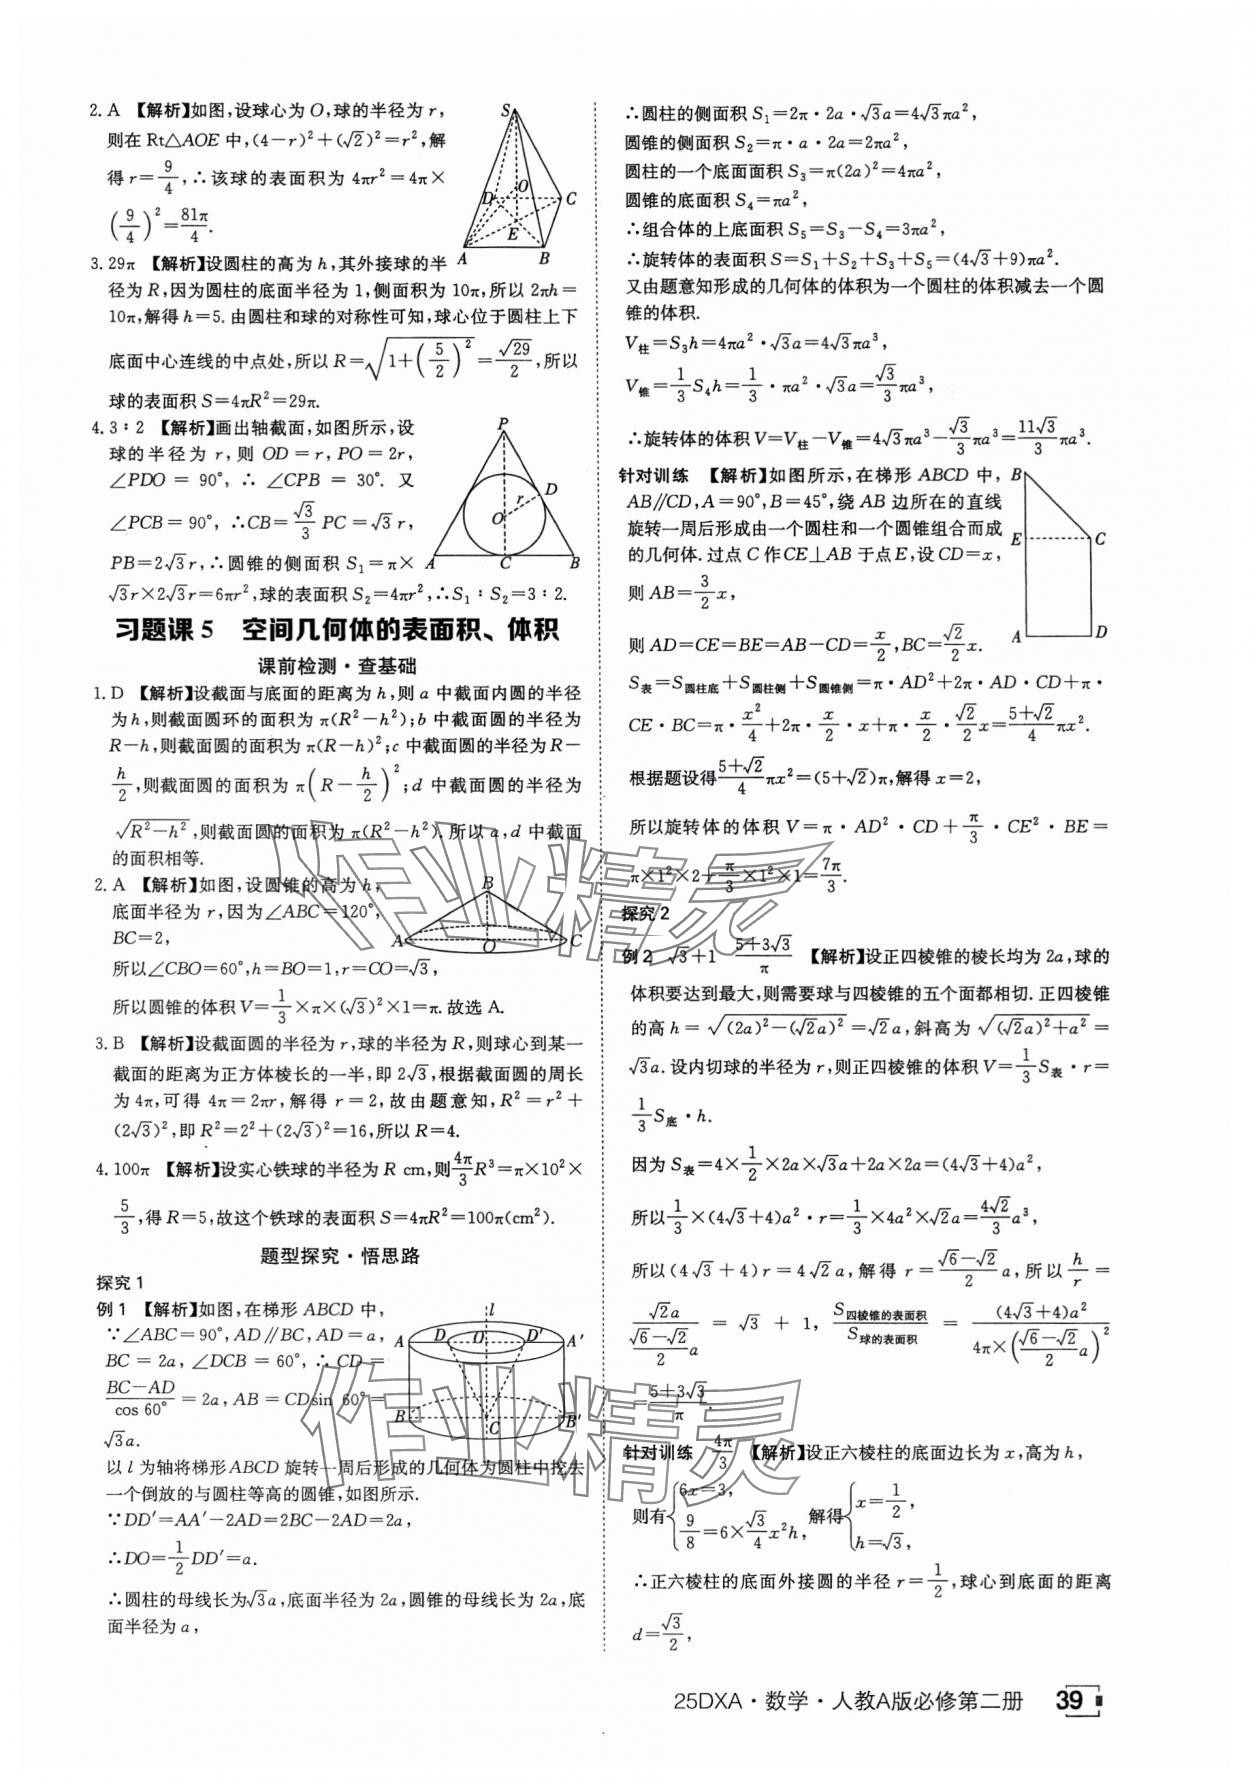 2. A 【解析】如图,设球心为 O,球的半径为 r,
则在 Rt△AOE 中,(4－r)²＋(√2)²＝r²,解
得 r＝9/4,∴该球的表面积为 4πr²＝4π×
(9/4)²＝81π/4.
S
O
D
C
E
A
B
3. 29π 【解析】设圆柱的高为 h,其外接球的半
径为 R,因为圆柱的底面半径为 1,侧面积为 10π,所以 2πh＝
10π,解得 h＝5. 由圆柱和球的对称性可知,球心位于圆柱上下
底面中心连线的中点处,所以 R＝√(1＋(5/2)²)＝√29/2,所以
球的表面积 S＝4πR²＝29π.
4. 3∶2 【解析】画出轴截面,如图所示,设
球的半径为 r,则 OD＝r,PO＝2r,
∠PDO＝90°,∴∠CPB＝30°. 又
∠PCB＝90°,∴CB＝√3/3 PC＝√3 r,
PB＝2√3 r,∴圆锥的侧面积 S₁＝π×
√3 r×2√3 r＝6πr²,球的表面积 S₂＝4πr²,∴S₁∶S₂＝3∶2.
P
r
D
O
A
C
B
习题课 5 空间几何体的表面积、体积
课前检测·查基础
1. D 【解析】设截面与底面的距离为 h,则 a 中截面内圆的半径
为 h,则截面圆环的面积为 π(R²－h²);b 中截面圆的半径为
R－h,则截面圆的面积为 π(R－h)²;c 中截面圆的半径为 R－
h/2,则截面圆的面积为 π(R－h/2)²;d 中截面圆的半径为
√(R²－h²),则截面圆的面积为 π(R²－h²). 所以 a,d 中截面
的面积相等.
2. A 【解析】如图,设圆锥的高为 h,
底面半径为 r,因为∠ABC＝120°,
BC＝2,
所以∠CBO＝60°,h＝BO＝1,r＝CO＝√3,
所以圆锥的体积 V＝1/3×π×(√3)²×1＝π. 故选 A.
B
A
O
C
3. B 【解析】设截面圆的半径为 r,球的半径为 R,则球心到某一
截面的距离为正方体棱长的一半,即 2√3,根据截面圆的周长
为 4π,可得 4π＝2πr,解得 r＝2,故由题意知,R²＝r²＋
(2√3)²,即 R²＝2²＋(2√3)²＝16,所以 R＝4.
4. 100π 【解析】设实心铁球的半径为 R cm,则4π/3 R³＝π×10²×
5/3,得 R＝5,故这个铁球的表面积 S＝4πR²＝100π(cm²).
题型探究·悟思路
探究 1
例 1 【解析】如图,在梯形 ABCD 中,
∵∠ABC＝90°,AD∥BC,AD＝a,
BC＝2a,∠DCB＝60°,∴CD＝
(BC－AD)/cos 60°＝2a,AB＝CDsin 60°＝
√3 a.
l
A
D
O
D′
A′
B
C
B′
以 l 为轴将梯形 ABCD 旋转一周后形成的几何体为圆柱中挖去
一个倒放的与圆柱等高的圆锥,如图所示.
∵DD′＝AA′－2AD＝2BC－2AD＝2a,
∴DO＝1/2 DD′＝a.
∴圆柱的母线长为√3 a,底面半径为 2a,圆锥的母线长为 2a,底
面半径为 a,
∴圆柱的侧面积 S₁＝2π·2a·√3 a＝4√3 πa²,
圆锥的侧面积 S₂＝π·a·2a＝2πa²,
圆柱的一个底面面积 S₃＝π(2a)²＝4πa²,
圆锥的底面积 S₄＝πa²,
∴组合体的上底面积 S₅＝S₃－S₄＝3πa²,
∴旋转体的表面积 S＝S₁＋S₂＋S₃＋S₅＝(4√3＋9)πa².
又由题意知形成的几何体的体积为一个圆柱的体积减去一个圆
锥的体积.
V柱＝S₃h＝4πa²·√3 a＝4√3 πa³,
V锥＝1/3 S₄h＝1/3·πa²·√3 a＝√3/3 πa³,
∴旋转体的体积 V＝V柱－V锥＝4√3 πa³－√3/3 πa³＝11√3/3 πa³.
针对训练 【解析】如图所示,在梯形 ABCD 中,
AB∥CD,A＝90°,B＝45°,绕 AB 边所在的直线
旋转一周后形成由一个圆柱和一个圆锥组合而成
的几何体. 过点 C 作 CE⊥AB 于点 E,设 CD＝x,
则 AB＝3/2 x,
则 AD＝CE＝BE＝AB－CD＝x/2,BC＝√2/2 x.
B
E
C
A
D
S表＝S圆柱底＋S圆柱侧＋S圆锥侧＝π·AD²＋2π·AD·CD＋π·
CE·BC＝π·x²/4＋2π·x/2·x＋π·x/2·√2/2 x＝(5＋√2)/4 πx².
根据题设得(5＋√2)/4 πx²＝(5＋√2)π,解得 x＝2,
所以旋转体的体积 V＝π·AD²·CD＋π/3·CE²·BE＝
π×1²×2＋π/3×1²×1＝7π/3.
探究 2
例 2 √3＋1 (5＋3√3)/π 【解析】设正四棱锥的棱长均为 2a,球的
体积要达到最大,则需要球与四棱锥的五个面都相切. 正四棱锥
的高 h＝√((2a)²－(√2 a)²)＝√2 a,斜高为√((√2 a)²＋a²)＝
√3 a. 设内切球的半径为 r,则正四棱锥的体积 V＝1/3 S表·r＝
1/3 S底·h.
因为 S表＝4×1/2×2a×√3 a＋2a×2a＝(4√3＋4)a²,
所以1/3×(4√3＋4)a²·r＝1/3×4a²×√2 a＝4√2/3 a³,
所以(4√3＋4)r＝4√2 a,解得 r＝(√6－√2)/2 a,所以h/r＝
√2 a/((√6－√2)/2 a)＝√3＋1,S四棱锥的表面积/S球的表面积＝(4√3＋4)a²/(4π×((√6－√2)/2 a)²)
＝(5＋3√3)/π.
针对训练 4π/3 【解析】设正六棱柱的底面边长为 x,高为 h,
则有{6x＝3, 9/8＝6×√3/4 x²h, 解得{x＝1/2, h＝√3,
∴正六棱柱的底面外接圆的半径 r＝1/2,球心到底面的距离
d＝√3/2,
作业精灵
作业精灵
25DXA·数学·人教A版必修第二册 39